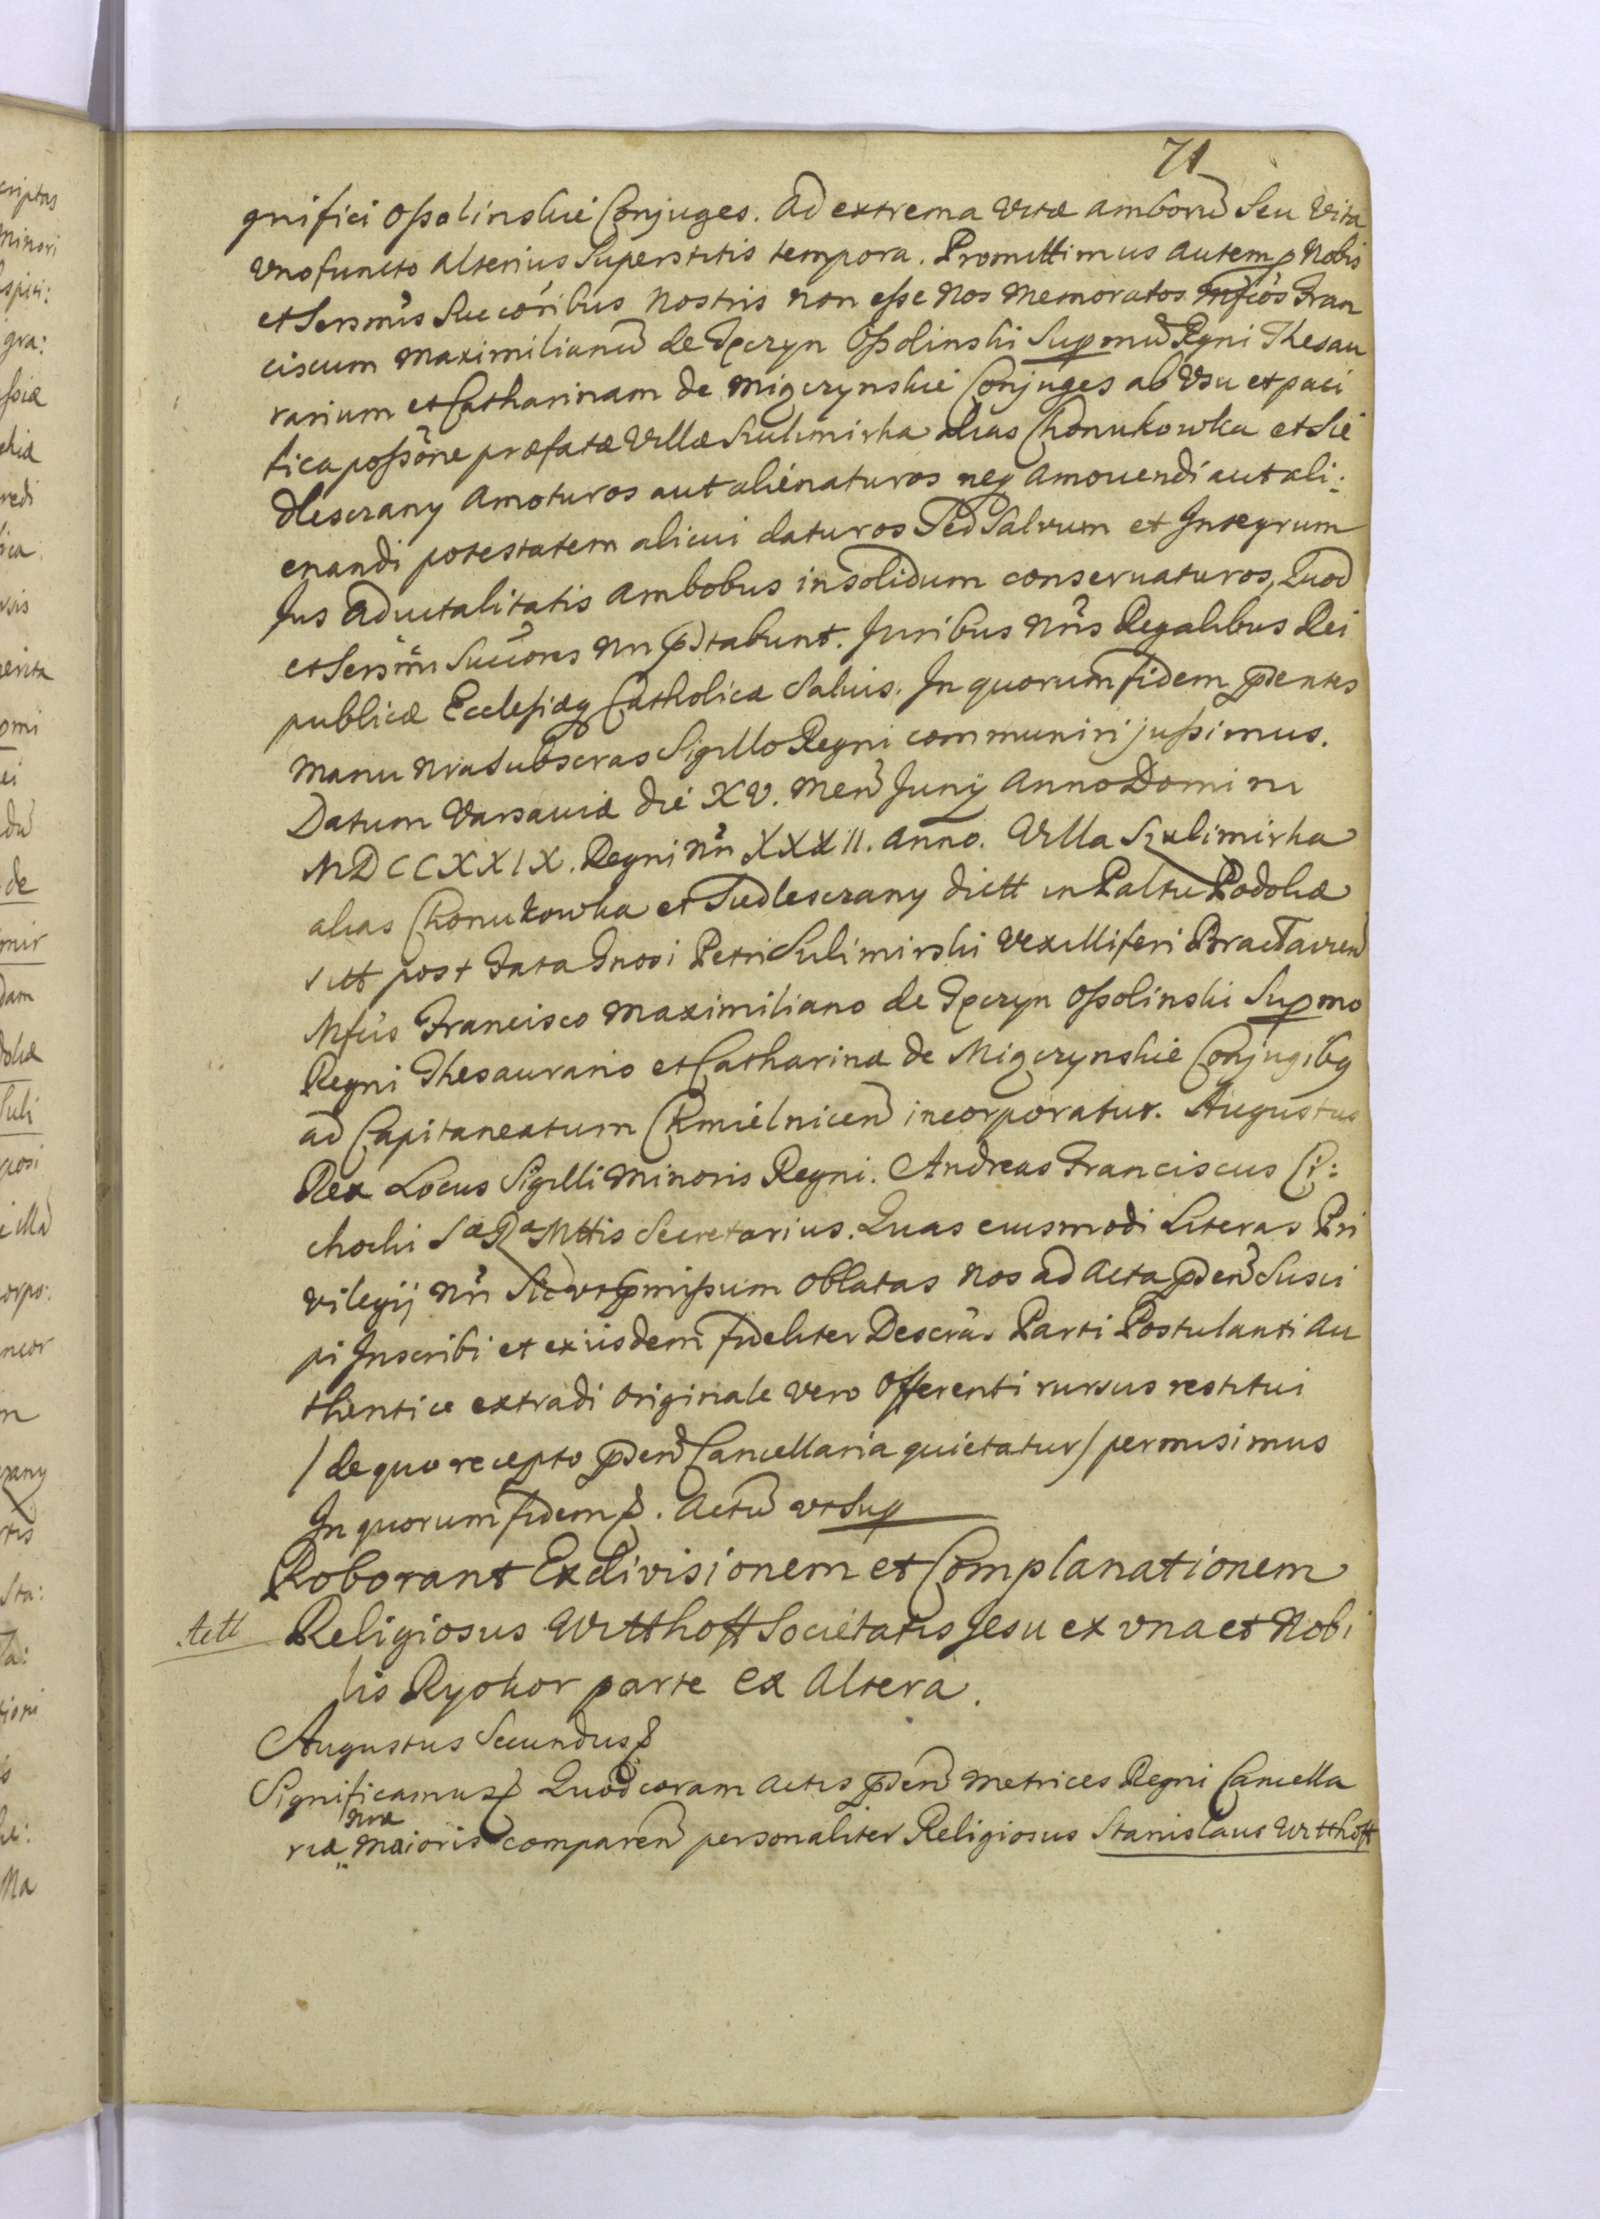 71
gnifici Ossolinskie Conjuges. Ad extrema Vitæ amborũ Seu Vita
Vno functo Alterius Superstitis tempora. Promittimus autem p Nobis
et Sersmis Succõribus Nostris non esse Nos Memoratos Mfcos Fran
ciscum Maximilianũ de Tęczyn Ossolinski Supmũ Rgni Thesau
rarium et Catharinam de Migczynskie Conjuges ab Vsu et paci
fica possõne præfatæ Villæ Sulimirka alias Chonukowka et Sie
dlesczany amoturos aut alienaturos neq amouendi aut ali:
enandi potestatem alicui daturos Sed Salvum et Integrum
Jus aduitalitatis Ambobus in solidum conservaturos, Quod
et Sersmi Succores Nri pstabunt. Juribus Nris Regalibus Rei
publicæ Ecclesiæq Catholicæ Salvis. In quorum fidem pñtes
Manu Nra Subscras Sigillo Regni communiri jussimus.
Datum Varsaviæ die XV. Men Junÿ Anno Domi ni
MDCCXXIX. Regni Nri XXXII. Anno. Villa Sulimirka
alias Chonukowka et Siedlesczany dictt in Pałtu Podoliæ
sitt post Fata Gnosi Petri Sulimirski Vexilliferi Bracłavien
Mfcis Francisco Maximiliano de Tęczyn Ossolinski Supmo
Regni Thesaurario et Catharinæ de Migczynskie Conjugibq
ad Capitaneatum Chmielnicen incorporatur. Augustus
Rex Locus Sigilli Minoris Regni. Andreas Franciscus Ci:
chocki Sæ Ræ Mttis Secretarius. Quas eiusmodi Literas Pri
vilegij Nri Sic vt pmissum Oblatas Nos ad Acta pden Susci
pi Inscribi et ex iisdem fideliter Descrã. Parti Postulanti Au
thentice extradi Originale vero Offerenti rursus restitui
/ de quo recepto pden Cancellaria quietatur / permisimus
In quorum fidem &. Actũ vt Sup
Roborant Exdivisionem et Complanationem
Actt Religiosus Witthoff Societatis Jesu ex vna et Nobi
lis Ryokor parte ex Altera.
Augustus Secundus &
Significamus & Quod coram Actis pden Metrices Regni Cancella
riæ Nræ Maioris comparen personaliter Religiosus Stanislaus Witthoff